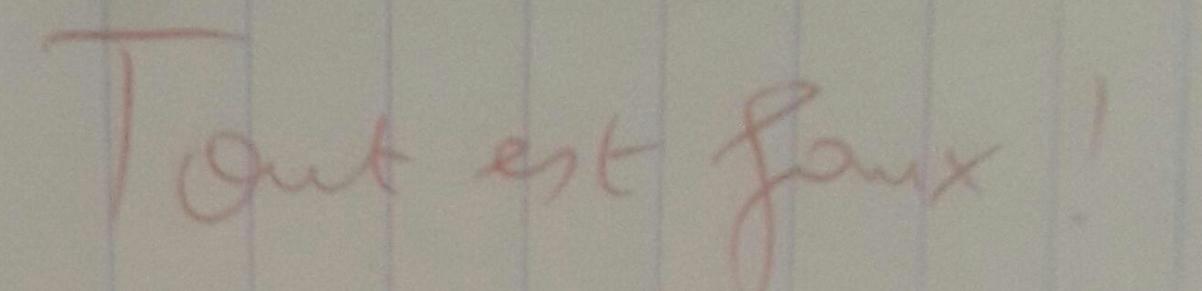 Tout est faux !